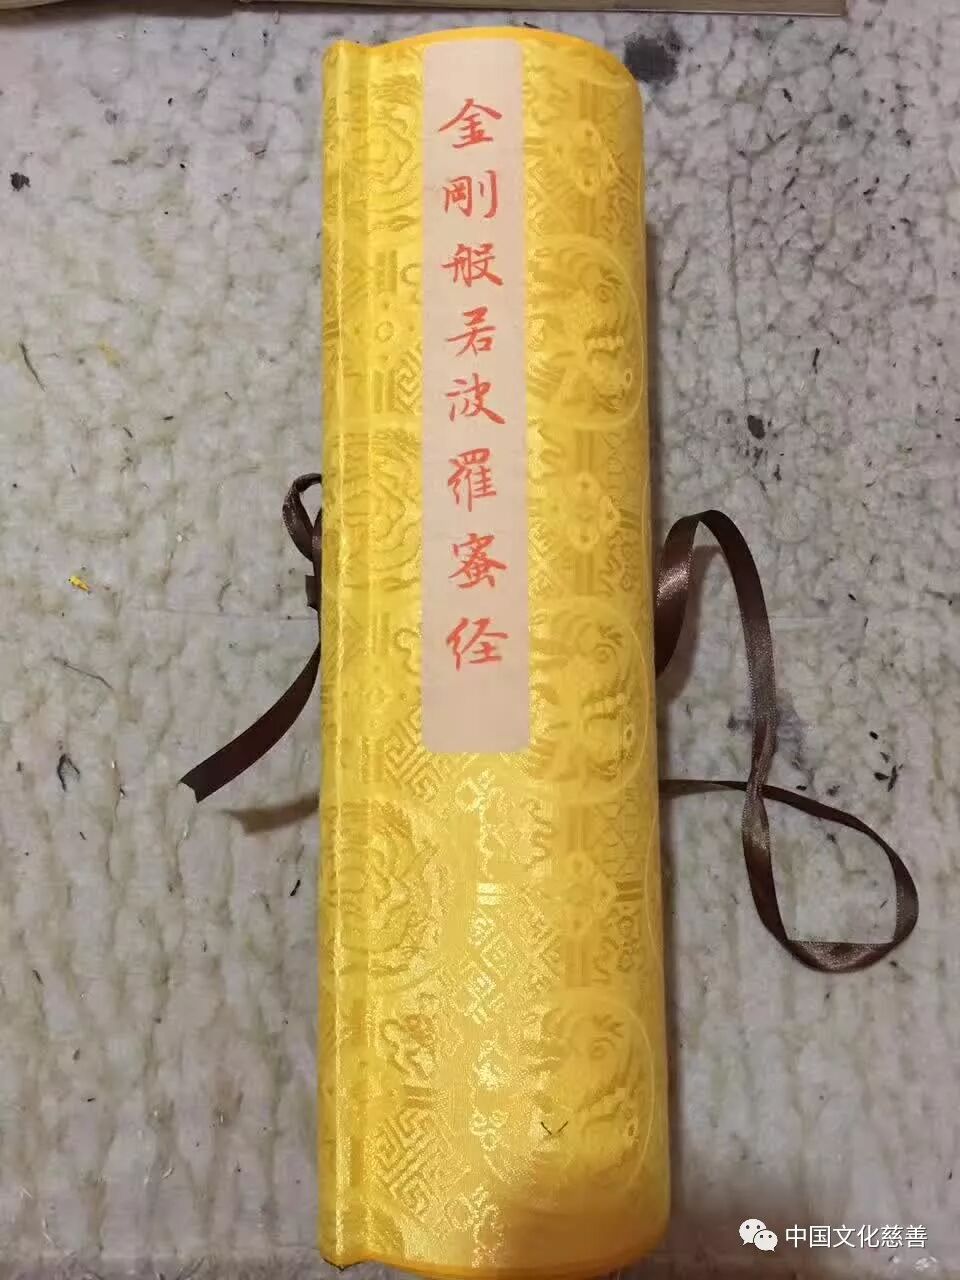 金剛般若波羅蜜经
中国文化慈善